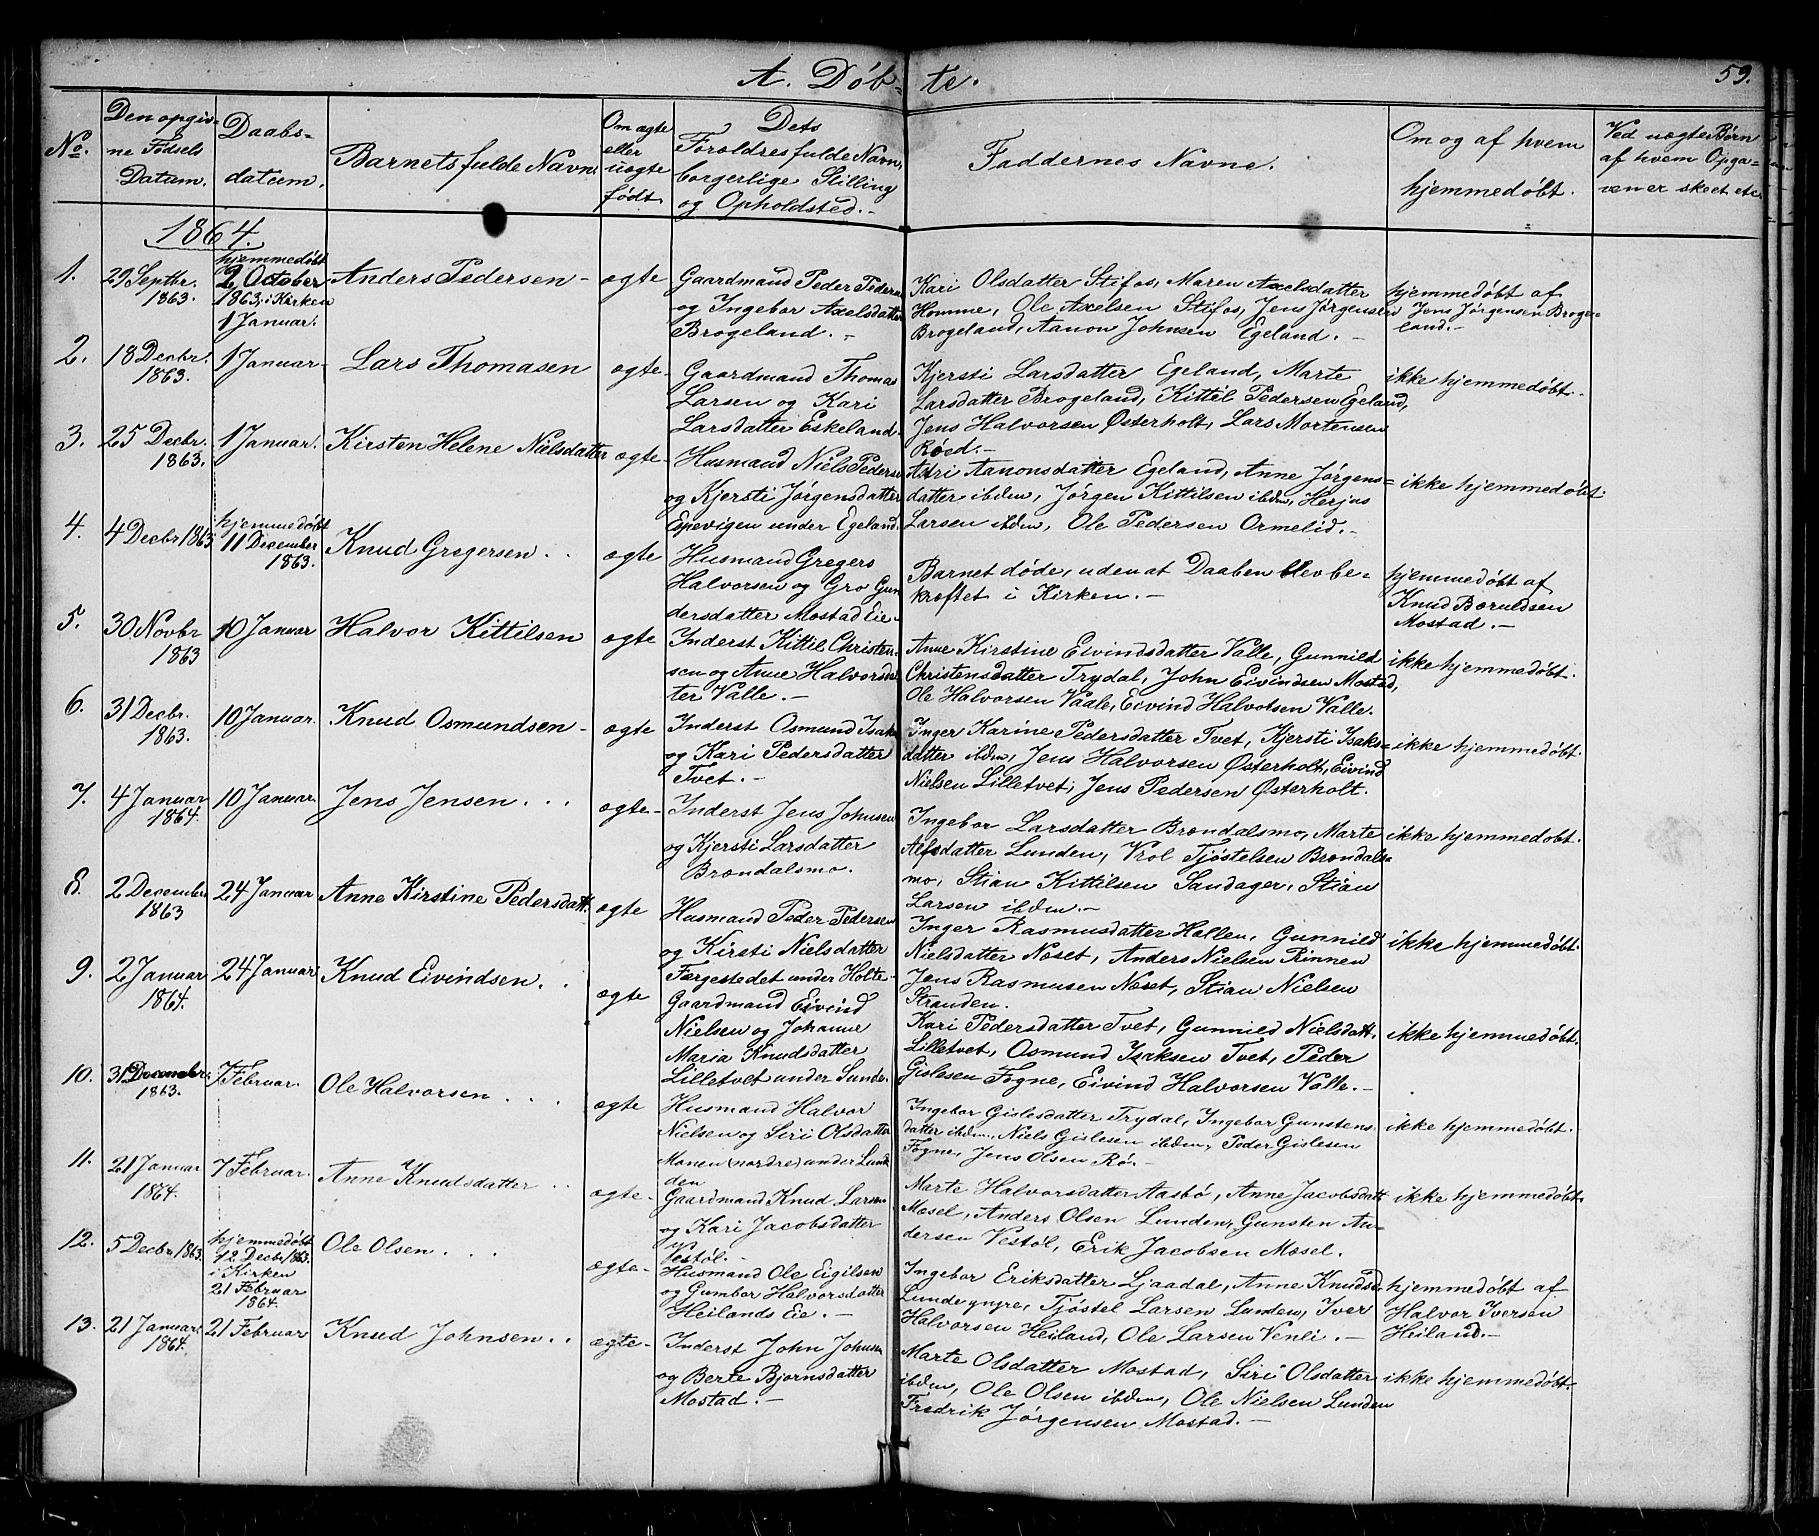 A. Döb- te.
59.
No.
Den opgiv-
ne Fødsels
Datum.
Daabs-
datum.
Barnets fulde Navn
Om ægte
eller
uægte
født.
Dets
Forældres fulde Navn,
borgerlige Stilling
og Opholdsted.-
Faddernes Navne.
Om og af hvem
hjemmedøbt.
Ved uægte Børn
af hvem Opga-
ven er skeet etc.
1864.
1.
29 Septbr.
1863.
hjemmedøbt
2 October
1863, i Kirken
1 Januar.
Anders Pedersen -
ægte
Gaardmand Peder Pedersen
og Ingebor Axelsdatter
Brogeland. -
Kari Olsdatter Stifos, Maren Axelsdatter
Homme, Ole Axelsen Stifos, Jens Jørgensen
Brogeland, Aanon Johnsen Egeland. -
hjemmedøbt af
Jens Jørgensen Broge-
land.-
2.
18 Decbr.
1863.
1 Januar.
Lars Thomasen
ægte-
Gaardmand Thomas
Larsen og Kari
Larsdatter Eskeland.
Kjersti Larsdatter Egeland, Marte
Larsdatter Brogeland, Kittil Pedersen Egeland,
Jens Halvorsen Østerholt, Lars Mortensen
Røed.-
ikke hjemmedøbt.
3.
25 Decbr.
1863.
1 Januar.
Kirsten Helene Nielsdatter
ægte-
Husmand Niels Pedersen
og Kjersti Jørgensdatter
Espevigen under Egeland.
Adri Aanonsdatter Egeland, Anne Jørgens-
datter ibdm, Jørgen Kittilsen ibdm, Herjus
Larsen ibdm, Ole Pedersen Ormelid.-
ikke hjemmedøbt.
4.
4 Decbr 1863
hjemmedøbt
11 December
1863.
Knud Gregersen . .
ægte
Husmand Gregers
Halvorsen og Gro Gun
dersdatter Mostad Eie
Barnet døde, uden at Daaben blev be-
kræftet i Kirken.-
hjemmedøbt af
Knud Boruldsen
Mostad.-
5.
30 Novbr
1863
10 Januar
Halvor Kittilsen
ægte
Inderst Kittil Christen-
sen og Anne Halvorsdat
ter Valle.-
Anne Kirstine Eivindsdatter Valle, Gunnild
Christensdatter Trydal, John Eivindsen Mostad,
Ole Halvorsen Vaale, Eivind Halvorsen Valle.
ikke hjemmedøbt.
6.
31 Decbr.
1863.
10 Januar.
Knud Osmundsen -
ægte
Inderst Osmund Isak
og Kari Pedersdatter
Tvet.-
Inger Karine Pedersdatter Tvet, Kjersti Isaks-
datter ibdm, Jens Halvorsen Østerholt, Eivind
Nielsen Lilletvet, Jens Pedersen Østerholt.
ikke hjemmedøbt.
7.
4 Januar
1864.
10 Januar.
Jens Jensen . . .
ægte-
Inderst Jens Johnsen
og Kjersti Larsdatter
Brøndalsmo.
Ingebor Larsdatter Brøndalsmo, Marte
Alfsdatter Lunden, Vrol Tjøstelsen Brøndals-
mo, Stian Kittilsen Sandager, Stian
Larsen ibdm.-
ikke hjemmedøbt.
8.
2 December
1863
24 Januar
Anne Kirstine Pedersdatt.
ægte
Husmand Peder Pedersen
og Kirsti Nielsdatter
Færgestedet under Holte-
Inger Rasmusdatter Hallen, Gunnild
Nielsdatter Næset, Anders Nielsen Rinnen
Jens Rasmusen Næset, Stian Nielsen
Stranden.
ikke hjemmedøbt.
9.
2 Januar
1864.
24 Januar
Knud Eivindsen. .
ægte
Gaardmand Eivind
Nielsen og Johanne
Maria Knudsdatter
Lilletvet under Sunde.
Kari Pedersdatter Tvet, Gunnild Nielsdatt.
Lilletvet, Osmund Isaksen Tvet, Peder
Gislesen Fogne, Eivind Halvorsen Valle.-
ikke hjemmedøbt.
10.
31 December
1863.
7 Februar.
Ole Halvorsen . . .
ægte
Husmand Halvor
Nielsen og Siri Olsdatter
Monen (nordre) under Lund
den
Ingebor Gislesdatter Trydal, Ingebor Gunstens-
datter ibdm, Niels Gislesen ibdm, Peder Gislesen
Fogne, Jens Olsen Rø.-
ikke hjemmedøbt.
11.
21 Januar
1864.
7 Februar.
Anne Knudsdatter . .
ægte-
Gaardmand Knud Larsen
og Kari Jacobsdatter
Vestøl.-
Marte Halvorsdatter Aasbø, Anne Jacobsdatt
Mæsel, Anders Olsen Lunden, Gunsten An-
dersen Vestøl, Erik Jacobsen Mæsel.
ikke hjemmedøbt.
12.
5 Decbr. 1863.
hjemmedøbt
12 Decbr 1863.
i Kirken
21 Februar
1864.
Ole Olsen. . .
ægte-
Husmand Ole Eigilsen
og Gumbor Halvorsdatter
Heilands Eie.-
Ingebor Eriksdatter Ljaadal, Anne Knudsd.
Lunde yngre, Tjøstel Larsen Lunden, Iver
Halvorsen Heiland, Ole Larsen Venli.-
hjemmedøbt af
Halvor Iversen
Heiland.-
13.
21 Januar
1864.
21 Februar
Knud Johnsen. .
ægte-
Inderst John Johnsen
og Berte Bjornsdatter
Mostad.-
Marte Olsdatter Mostad, Siri Olsdatter
ibdm, Ole Olsen ibdm, Ole Nielsen Lunden
Fredrik Jørgensen Mostad.-
ikke hjemmedøbt.